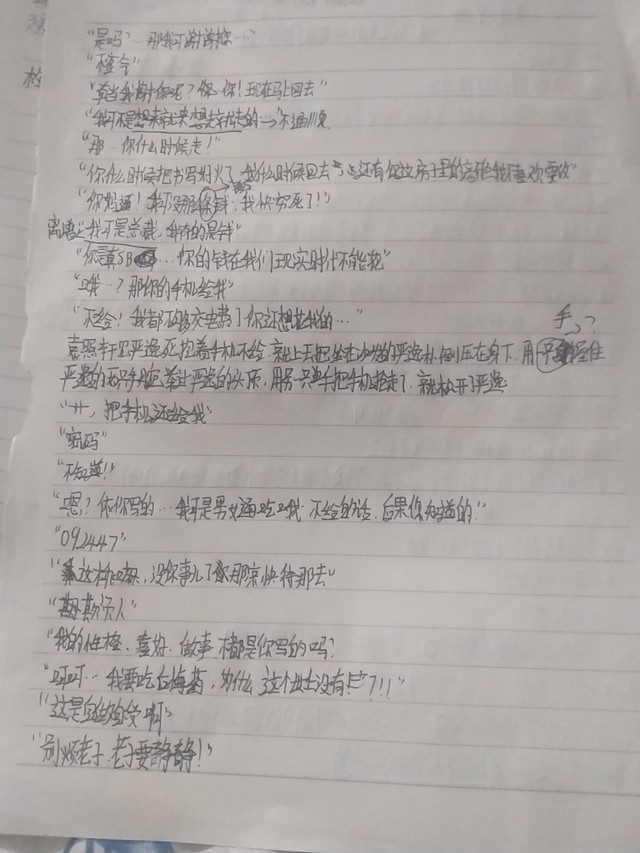 "是吗?…那我可谢谢您…"
"不客气"
"真当我谢你呢?你、你!现在马上回去"
"我可不是想来就来想走就走的→不通顺
"那…你什么时候走!"
"你什么时候把书写好了,我什么时候回去 还有你这房子里的 我不喜欢要改"
"你妈逼!我可没那 钱,我快穷死了!"
离谱 "我可是总裁,我有的是钱"
"你是真SB…你的钱在我们现实时代不能花"
"哦…?那你的手机给我"
"不给!我都不够交电费了你还想花我的…"
手??
袁照 严逸死抱着手机不给,就上去把坐在沙发的严逸扑倒压在身下,用 握住
严逸的两只手腕举过严逸的头顶,用另一只手把手机抢走了,就松开了严逸
"艹,把手机还给我"
"密码"
"不知道!"
"嗯?依你写的…我可是男女通吃哦 不给的话,后果你知道的"
"092447"
"这样嘛,没你事儿了 那凉快待那去"
"真烦人"
"我的性格、喜好、做事,不都是你写的吗?"
"呵呵…我要吃后悔药,为什么这个世上没有!?!!"
"这是 啊"
"别烦老子,老子要静静!"